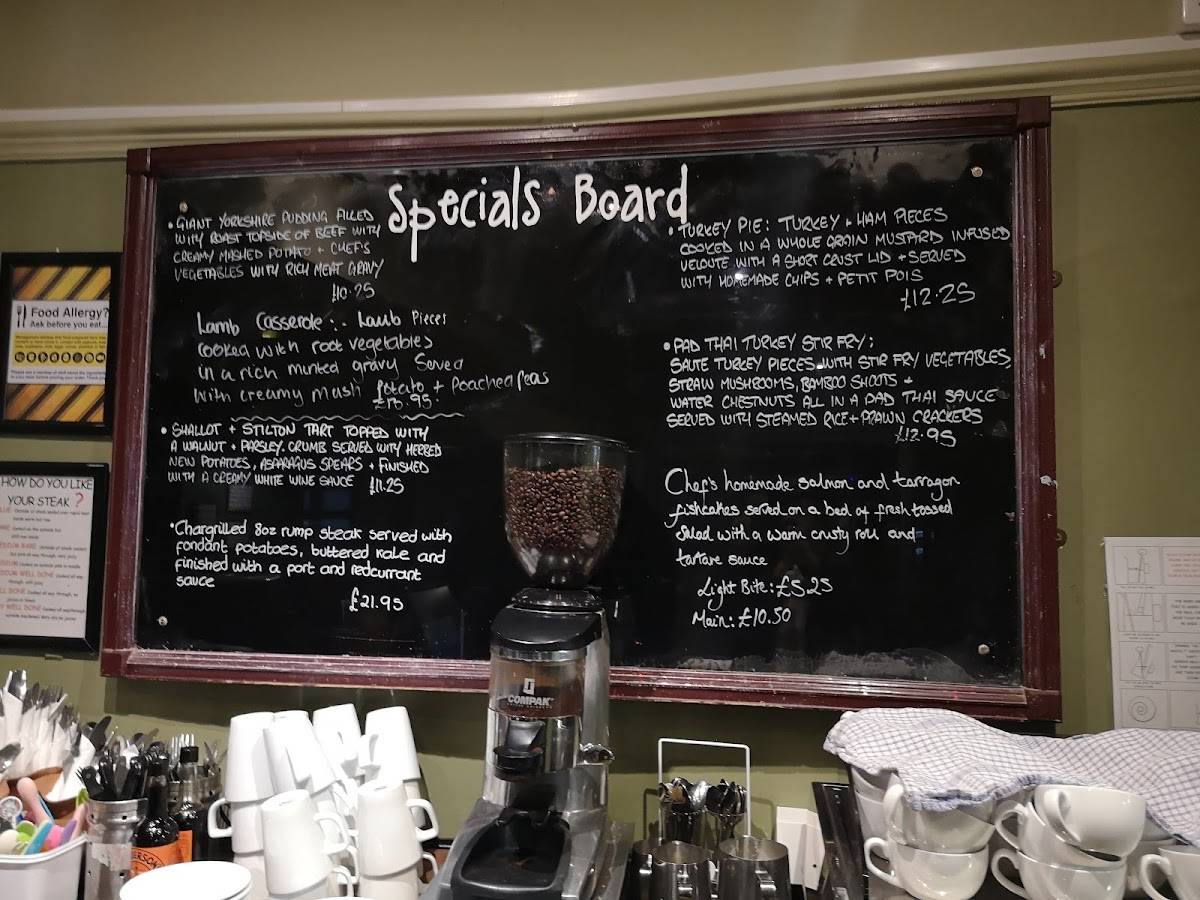 Specials Board
• GIANT YORKSHIRE PUDDING FILLED
WITH ROAST TOPSIDE OF BEEF WITH
CREAMY MASHED POTATO + CHEF'S
VEGETABLES WITH RICH MEAT GRAVY
£10.25
Lamb Casserole:- Lamb Pieces
cooked with root vegetables
in a rich minted gravy Served
with creamy mash potato + Poached peas
£13.95
• SHALLOT + STILTON TART TOPPED WITH
A WALNUT + PARSLEY CRUMB SERVED WITH HERBED
NEW POTATOES, ASPARAGUS SPEARS + FINISHED
WITH A CREAMY WHITE WINE SAUCE £11.25
• Chargrilled 8oz rump steak served with
fondant potatoes, buttered kale and
finished with a port and redcurrant
sauce
£21.95
• TURKEY PIE: TURKEY + HAM PIECES
COOKED IN A WHOLE GRAIN MUSTARD INFUSED
VELOUTE WITH A SHORT CRUST LID + SERVED
WITH HOMEMADE CHIPS + PETIT POIS
£12.25
• PAD THAI TURKEY STIR FRY:
SAUTE TURKEY PIECES WITH STIR FRY VEGETABLES,
STRAW MUSHROOMS, BAMBOO SHOOTS +
WATER CHESTNUTS ALL IN A PAD THAI SAUCE
SERVED WITH STEAMED RICE + PRAWN CRACKERS
£12.95
Chef's homemade salmon and tarragon
fishcakes served on a bed of fresh tossed
salad with a warm crusty roll and
tartare sauce
Light Bite: £5.25
Main: £10.50
Food Allergy?
Ask before you eat...
HOW DO YOU LIKE
YOUR STEAK ?
COMPAK